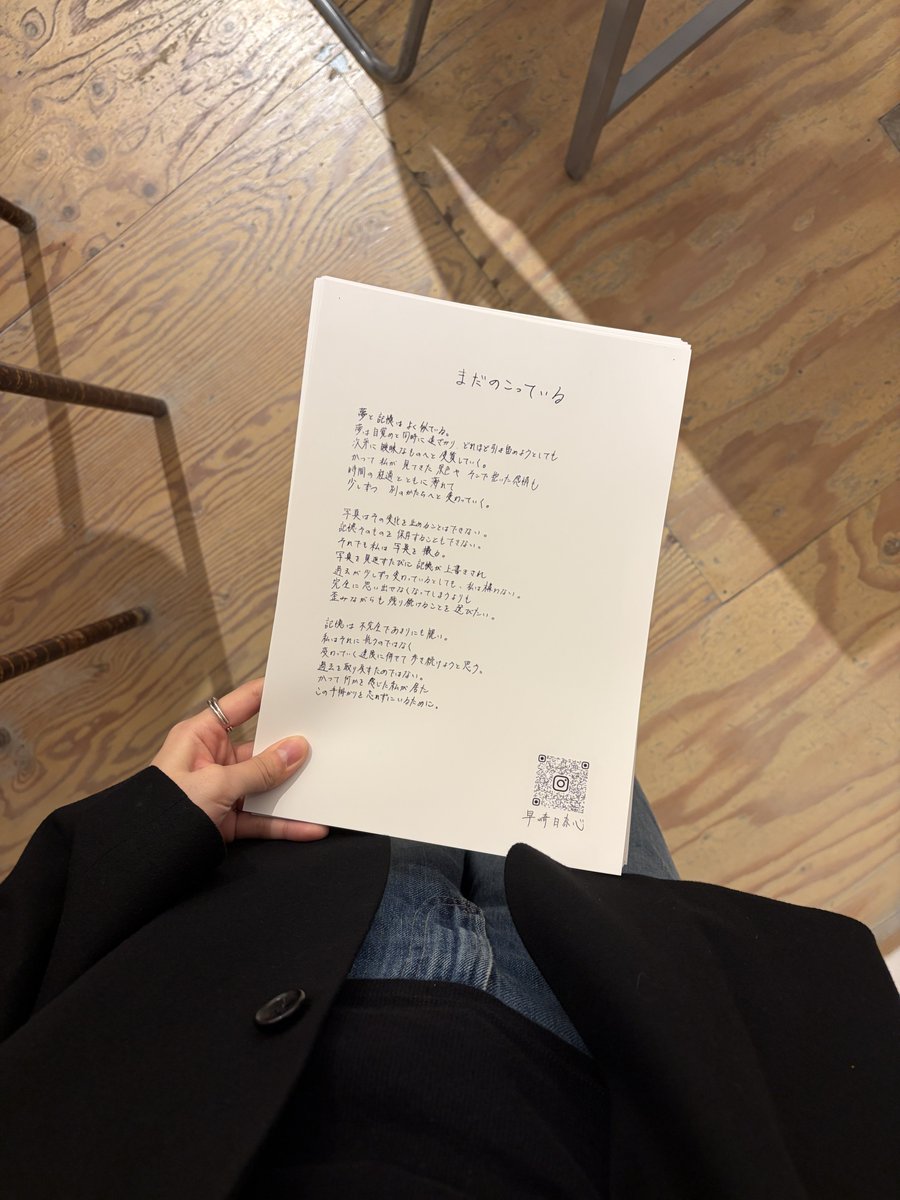 まだのこっている
夢と記憶はよく似ている。
夢は目覚めと同時に遠ざかり、どれほど引き留めようとしても
次第に曖昧なものへと変質していく。
かつて私が見てきた景色や そこで抱いた感情も
時間の経過とともに薄れて
少しずつ 別のかたちへと変わっていく。
写真はその変化を止めることはできない。
記憶そのものを保存することもできない。
それでも私は写真を撮る。
写真を見返すたびに記憶が上書きされ
過去が少しずつ変わっていったとしても、私は構わない。
完全に思い出せなくなってしまうよりも
歪みながらも残り続けることを選びたい。
記憶は不完全であまりにも脆い。
私はそれに抗うのではなく
変わっていく速度に併せて歩き続けようと思う。
過去を取り戻すためではない。
かつて何かを感じた私が居た
この手掛かりを忘れずにいるために。
早崎日奈心